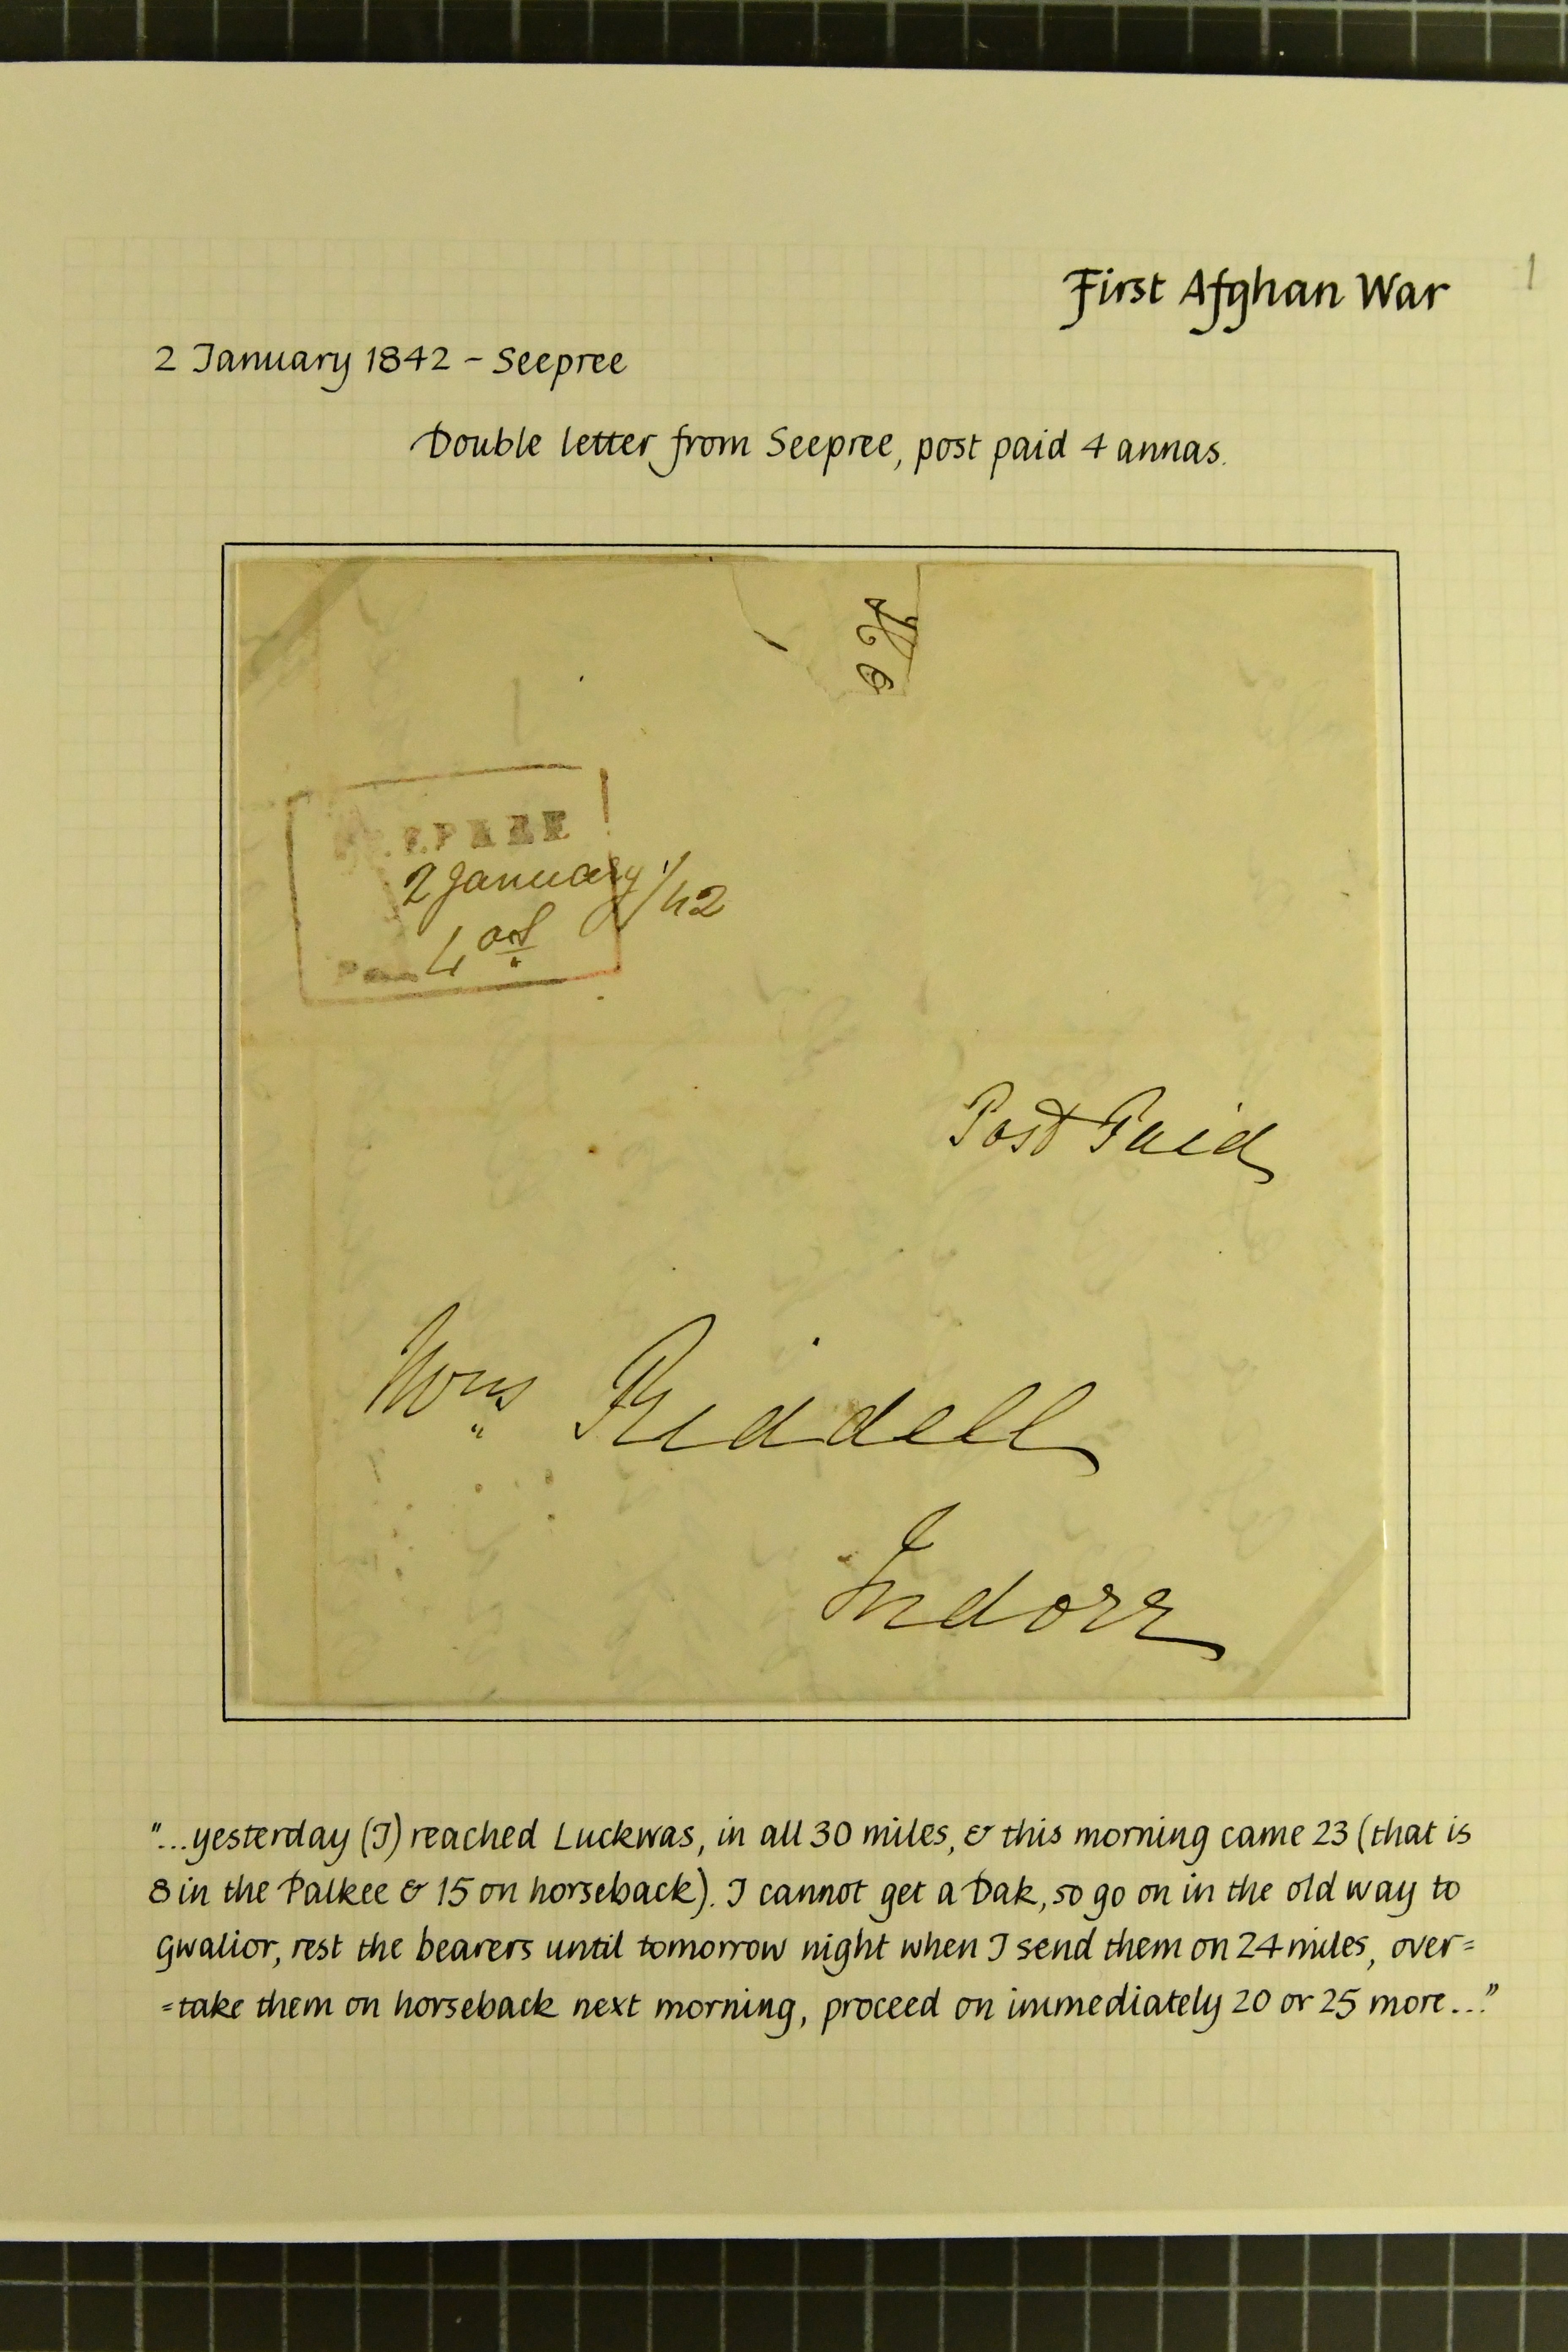 First Afghan War
1
2 January 1842 – Seepree
Double letter from Seepree, post paid 4 annas.
EPREE
2 January /42
4 as
Post Paid
Riddell
Indore
"...yesterday (I) reached Luckwas, in all 30 miles, & this morning came 23 (that is
8 in the Palkee & 15 on horseback). I cannot get a Dak, so go on in the old way to
Gwalior, rest the bearers until tomorrow night when I send them on 24 miles, over=
=take them on horseback next morning, proceed on immediately 20 or 25 more..."